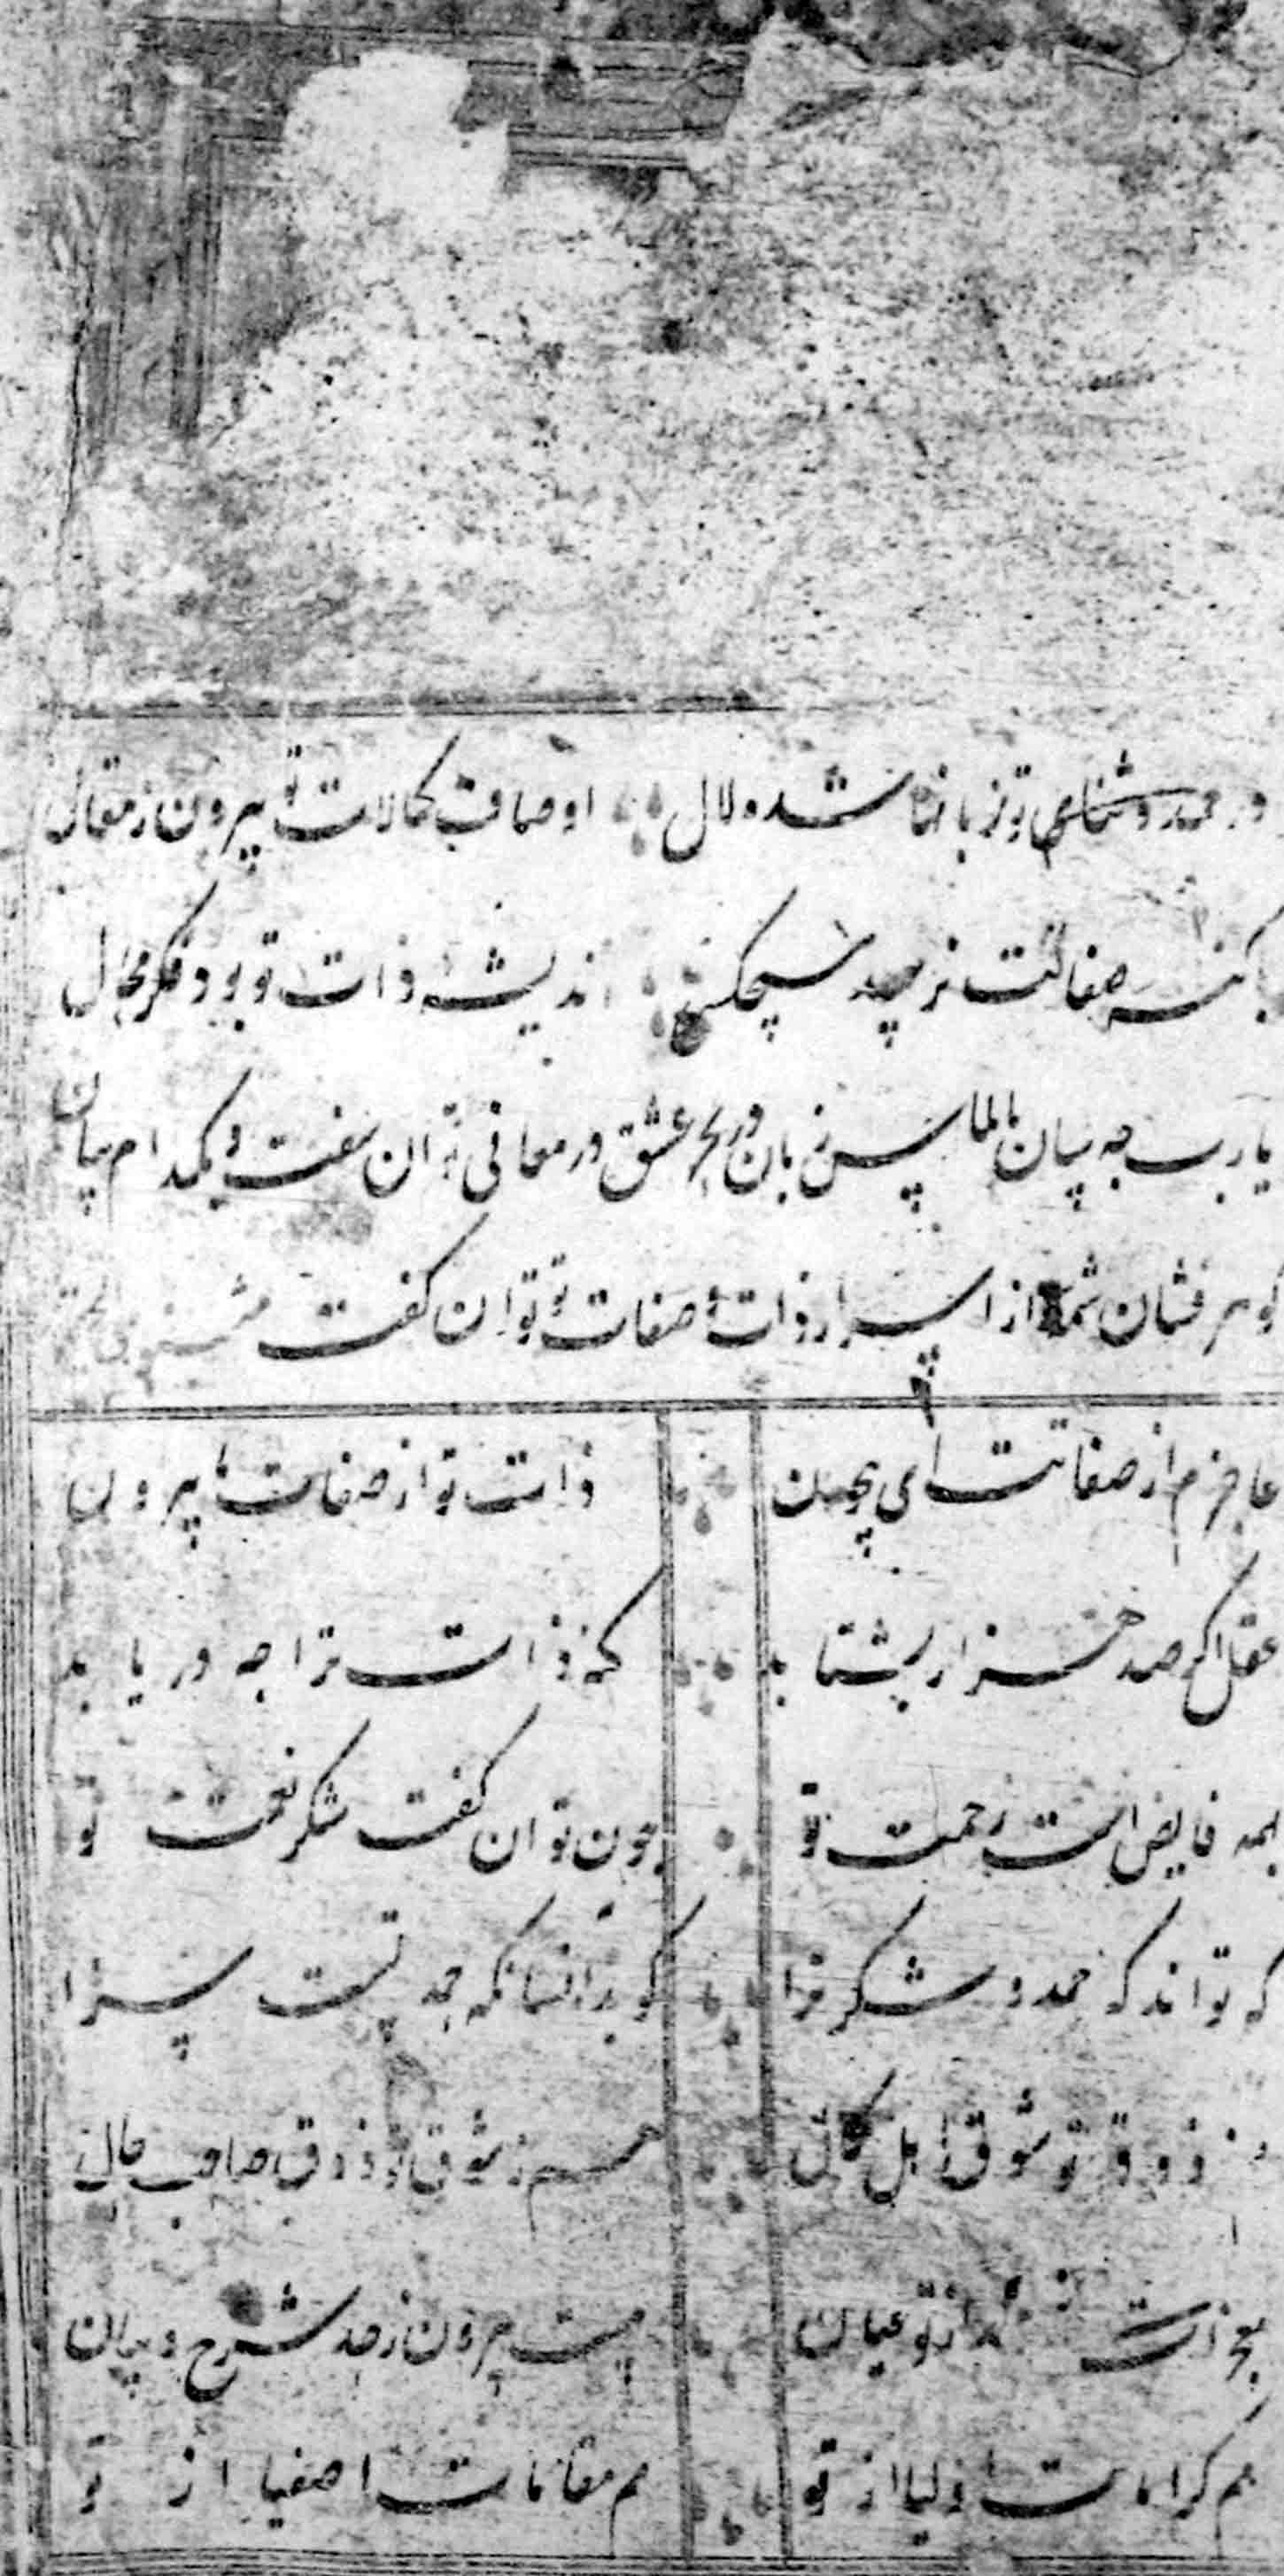 در حمد و ثنای تو زبانها شده لال اوصاف کمالات تو بیرون ز مقال
کنه صفاتت نرسد هیچکس اندیشه ذات تو بود فکر محال
یارب چه بیان بالماس زبان در بحر عشق در معانی توان سفت و بکدام بیان
گوهر فشان شمه از اسرار ذات و صفات تو توان گفت
عاجزم از صفاتت ای بیچون ذات تو از صفات ما بیرون
عقل اگر صد هزار بشتابد کنه ذات ترا چه دریابد
بهمه فایض است رحمت تو چون توان گفت شکر نعمت تو
که تواند که حمد و شکر ترا گوید آنسانکه حمد تست سزا
ذوق تو شوق اهل کمال هم ز شوق تو ذوق صاحب حال
معجزات از تو عیان هست بیرون ز حد شرح و بیان
هم کرامات اولیا از تو هم مقامات اصفیا از تو